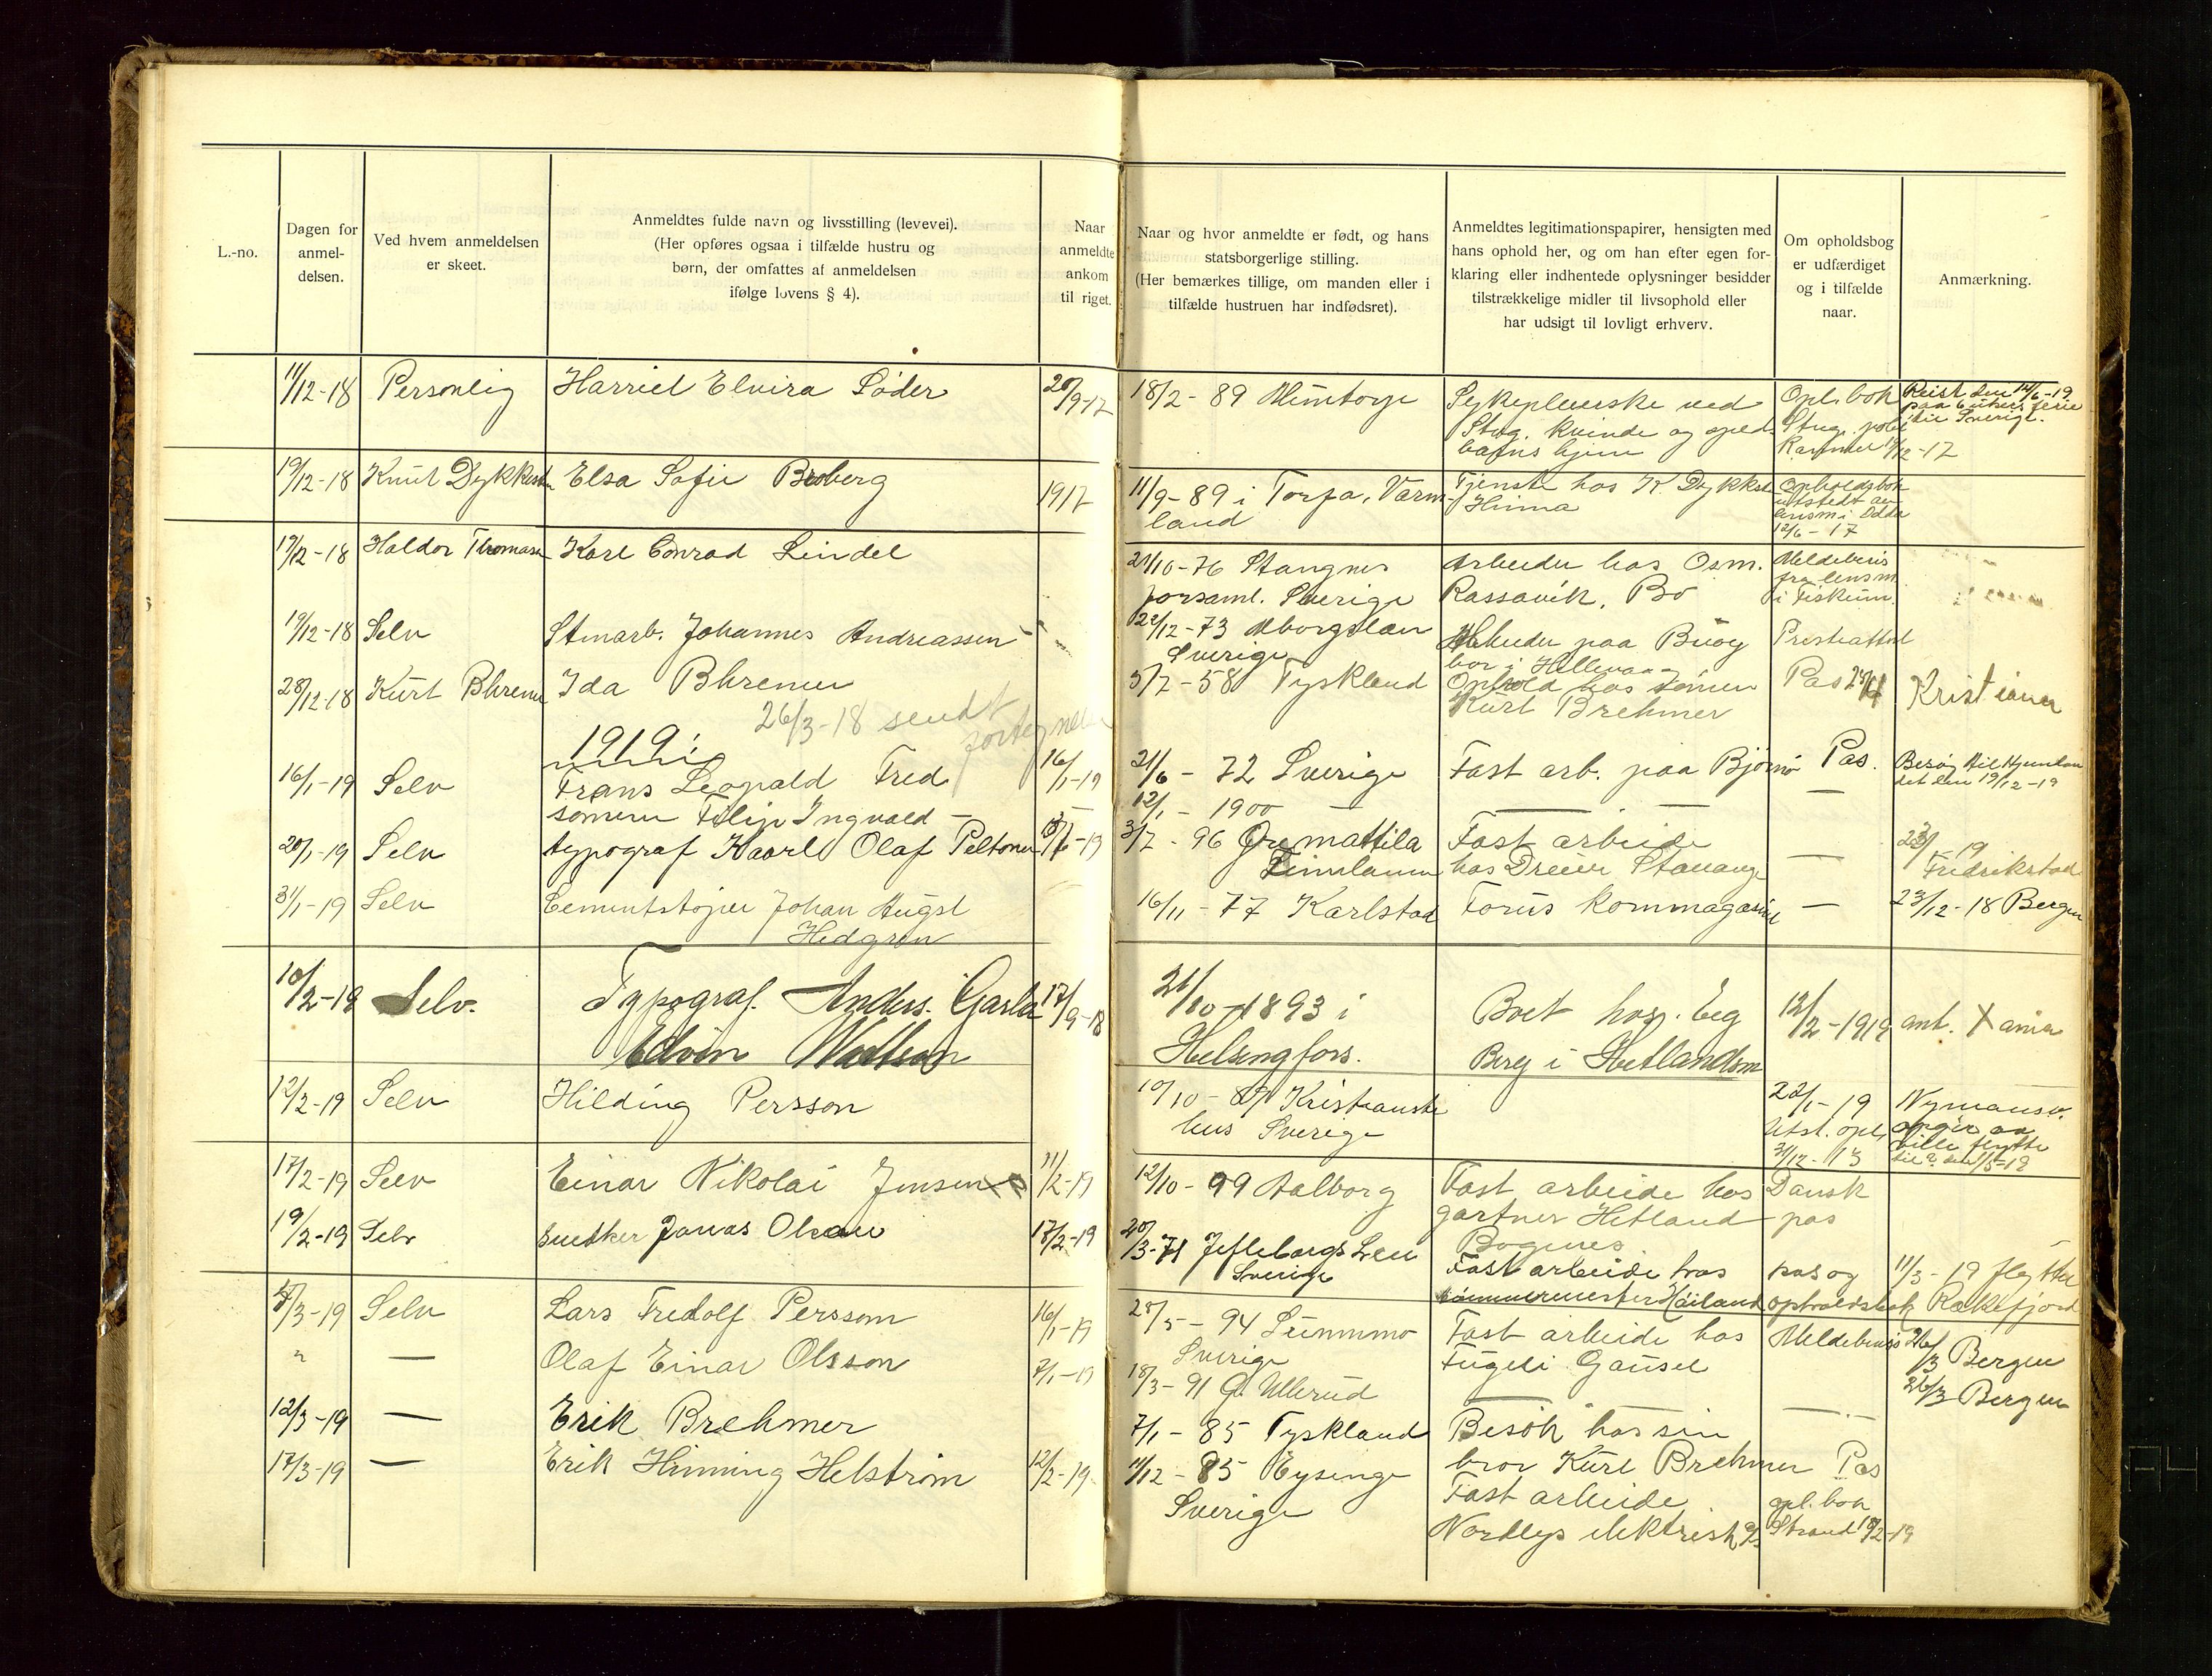 L.-no.
Dagen for
anmel-
delsen.
Ved hvem anmeldelsen
er skeet.
Anmeldtes fulde navn og livsstilling (levevei).
(Her opføres ogsaa i tilfælde hustru og
børn, der omfattes af anmeldelsen
ifølge lovens § 4).
Naar
anmeldte
ankom
til riget.
Naar og hvor anmeldte er født, og hans
statsborgerlige stilling.
(Her bemærkes tillige, om manden eller i
tilfælde hustruen har indfødsret).
Anmeldtes legitimationspapirer, hensigten med
hans ophold her, og om han efter egen for-
klaring eller indhentede oplysninger besidder
tilstrækkelige midler til livsophold eller
har udsigt til lovligt erhverv.
Om opholdsbog
er udfærdiget
og i tilfælde
naar.
Anmærkning.
11/12-18 Personlig Harriel Elvira Søder 28/9-17 18/2-89
Sykepleierske ved
Stvg. kvinde og sped-
barns hjem
Opl. bok
Stvg. poli
Kammer 19/12-17
Reist den 14/6-19
paa 6 ukers ferie
til Sverige.
19/12-18 Knut Dykkesten Elsa Sofie Broberg 1917 11/9-89 i Torpa, Värm-
land
Tjeneste hos K. Dykkest
Hinna
Opholdsbok
utstedt av
lensm i Odda
12/6-17
19/12-18 Haldor Thomasen Karl Conrad Lindel
21/10-76 Stangnes
forsaml. Sverige
Arbeider hos Osm.
Rassavik, Bo
Meldebevis
fra lensm.
i Fiskum.
19/12-18 Selv Stenarb. Johannes Andreassen
22/12-73
Sverige
Arbeider paa Buøy
bor i Hillevaag
Presteattest
28/12-18 Kurt Bhremer Ida Bhremer
5/7-58 Tyskland
Ophold hos sønnen
Kurt Brehmer
Pas
Kristiania
26/3-18 sendt
fortegnelse
1919:
16/1-19 Selv Frans Leopald Fred 16/1-19
21/6-72 Sverige Fast arb. paa Bjørnø Pas.
Besøg til Hjemlan
det den 19/12-19
sønnen Filip Ingvald —
12/1-1900 — — —
20/1-19 Selv typograf Kaarlo Olaf Peltonen
3/7-96 Orimattila
Finnland
Fast arbeide
hos Dreier Stavange
—
23/1-19
Fredrikstad
31/1-19 Selv Cementstøper Johan August
Hedgren
16/11-77 Karlstad Forus kornmagasine — 23/12-18 Bergen
10/2-19 Selv. Typograf. Anders. Garla
Edvin
17/9-18
21/10-1893 i
Helsingfors.
Boet hos. Eeg
Berg i Hetlandsm
12/2-1919 ant. Xania
12/2-19 Selv Hilding Persson
10/10-89 Kristianste
hus Sverige
22/1-19
Utst. opl.
31/12-13
ville flytte
17/2-19 Selv Einar Nikolai Jensen 11/2-19
12/10-99 Aalborg
Fast arbeide hos
gartner Hetland
Bogenes
Dansk
pas
19/2-19 Selv Snedker Jonas Olsen 18/2-19
20/3-71 Jefleborgs Len
Sverige
Fast arbeide hos
tømmermester Høiland
pas og
opholdsbok
11/3-19 flyttet
Rækefjord
8/3-19 Selv Lars Fredolf Persson 16/1-19
28/5-94
Sverige
Fast arbeide hos
Fugeli Gausel
Meldebevis
26/3 Bergen
" — Olaf Einar Olsson 7/1-19
18/3-91 G. Ullerud — — 26/3 Bergen
12/3-19 — Erik Brehmer
7/1-85 Tyskland
Besøk hos sin
bror Kurt Brehmer Pas
17/3-19 — Erik Hinning Helstrøm 12/2-19
11/12-85
Sverige
Fast arbeide
Nordlys elektrisk
opl. bok
Strand 18/2-19